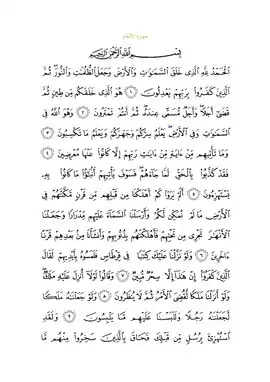 سورة الأنعام
بِسْمِ ٱللَّهِ ٱلرَّحْمَٰنِ ٱلرَّحِيمِ
ٱلْحَمْدُ لِلَّهِ ٱلَّذِى خَلَقَ ٱلسَّمَٰوَٰتِ وَٱلْأَرْضَ وَجَعَلَ ٱلظُّلُمَٰتِ وَٱلنُّورَ ۖ ثُمَّ
ٱلَّذِينَ كَفَرُوا۟ بِرَبِّهِمْ يَعْدِلُونَ ١ هُوَ ٱلَّذِى خَلَقَكُم مِّن طِينٍ ثُمَّ
قَضَىٰٓ أَجَلًا ۖ وَأَجَلٌ مُّسَمًّى عِندَهُۥ ۖ ثُمَّ أَنتُمْ تَمْتَرُونَ ٢ وَهُوَ ٱللَّهُ فِى
ٱلسَّمَٰوَٰتِ وَفِى ٱلْأَرْضِ ۖ يَعْلَمُ سِرَّكُمْ وَجَهْرَكُمْ وَيَعْلَمُ مَا تَكْسِبُونَ ٣
وَمَا تَأْتِيهِم مِّنْ ءَايَةٍ مِّنْ ءَايَٰتِ رَبِّهِمْ إِلَّا كَانُوا۟ عَنْهَا مُعْرِضِينَ ٤
فَقَدْ كَذَّبُوا۟ بِٱلْحَقِّ لَمَّا جَآءَهُمْ ۖ فَسَوْفَ يَأْتِيهِمْ أَنۢبَٰٓؤُا۟ مَا كَانُوا۟ بِهِۦ
يَسْتَهْزِءُونَ ٥ أَلَمْ يَرَوْا۟ كَمْ أَهْلَكْنَا مِن قَبْلِهِم مِّن قَرْنٍ مَّكَّنَّٰهُمْ فِى
ٱلْأَرْضِ مَا لَمْ نُمَكِّن لَّكُمْ وَأَرْسَلْنَا ٱلسَّمَآءَ عَلَيْهِم مِّدْرَارًا وَجَعَلْنَا
ٱلْأَنْهَٰرَ تَجْرِى مِن تَحْتِهِمْ فَأَهْلَكْنَٰهُم بِذُنُوبِهِمْ وَأَنشَأْنَا مِنۢ بَعْدِهِمْ قَرْنًا
ءَاخَرِينَ ٦ وَلَوْ نَزَّلْنَا عَلَيْكَ كِتَٰبًا فِى قِرْطَاسٍ فَلَمَسُوهُ بِأَيْدِيهِمْ لَقَالَ
ٱلَّذِينَ كَفَرُوٓا۟ إِنْ هَٰذَآ إِلَّا سِحْرٌ مُّبِينٌ ٧ وَقَالُوا۟ لَوْلَآ أُنزِلَ عَلَيْهِ مَلَكٌ ۖ
وَلَوْ أَنزَلْنَا مَلَكًا لَّقُضِىَ ٱلْأَمْرُ ثُمَّ لَا يُنظَرُونَ ٨ وَلَوْ جَعَلْنَٰهُ مَلَكًا
لَّجَعَلْنَٰهُ رَجُلًا وَلَلَبَسْنَا عَلَيْهِم مَّا يَلْبِسُونَ ٩ وَلَقَدِ
ٱسْتُهْزِئَ بِرُسُلٍ مِّن قَبْلِكَ فَحَاقَ بِٱلَّذِينَ سَخِرُوا۟ مِنْهُم مَّا